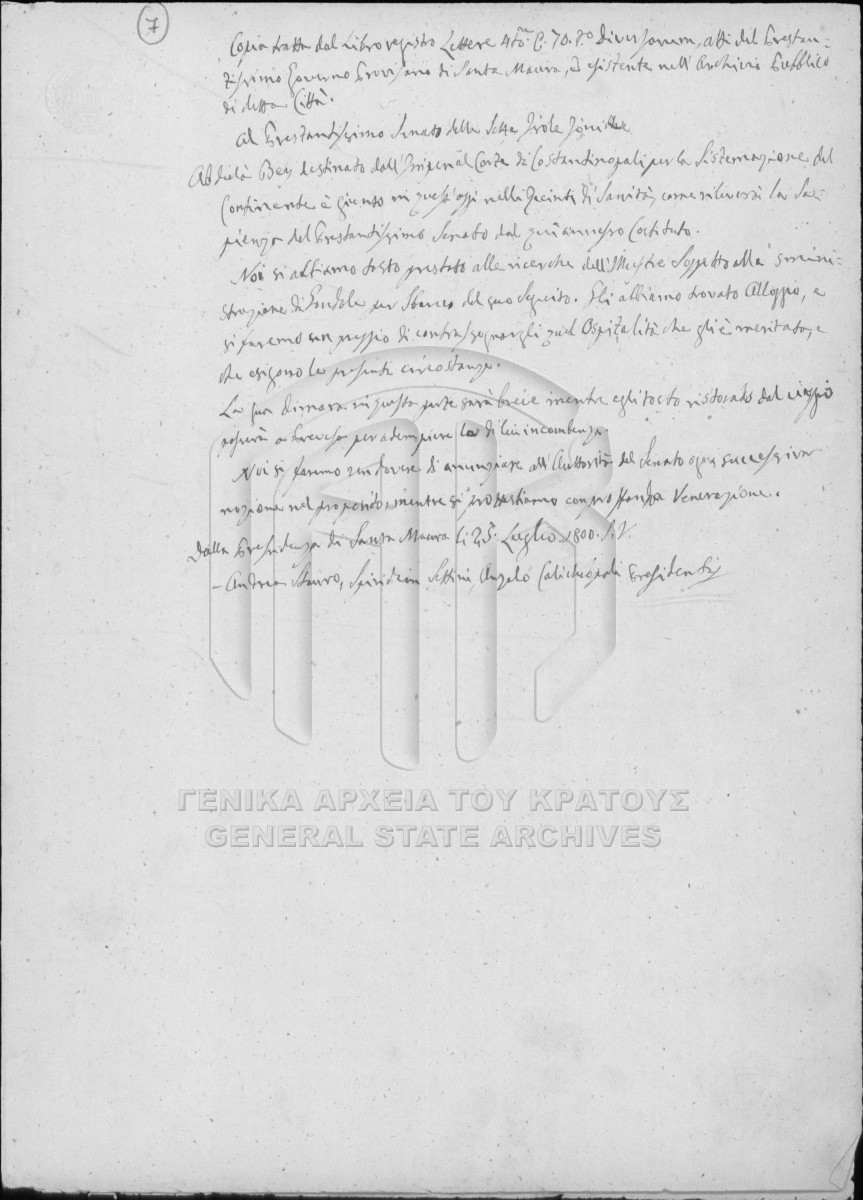 7
Copia tratta dal Libro registro Lettere 4to. C. 70. To. Diversorum, atti del Prestan-
tissimo Governo Provisorio di Santa Maura, esistente nell'Archivio Pubblico
di detta Città.
Al Prestantissimo Senato delle Sette Isole Jonie
Abdulà Bey destinato dall'Imperial Corte di Costantinopoli per la Sistemazione del
Continente è giunto in quest'oggi nelli Recinti di Sanità, come rileverà la Sa-
pienza del Prestantissimo Senato dal qui annesso Costituto.
Noi si abbiamo tosto prestato alle ricerche dell'Illustre Soggetto alla sommini-
strazione di per Sbarco del suo Seguito. Gli abbiamo trovato Alloggio, e
si faremo un preggio di contrasegnargli quel Ospitalità che gli è meritata, e
che esigono le presenti circostanze.
La sua dimora in questa parte sarà breve mentre egli tosto ristorato dal viaggio
passerà a Prevesa per adempiere la di lui incombenza.
Noi si faremo un dovere di annunziare all'Auttorità del Senato ogni successiva
nozione nel proposito, mentre si prottestiamo con profonda Venerazione.
Dalla Presidenza di Santa Maura li 25. Luglio 1800. S.V.
Andrea Stavro, Spiridion Settini, Angelo Calichiopulo Presidenti
ΓΕΝΙΚΑ ΑΡΧΕΙΑ ΤΟΥ ΚΡΑΤΟΥΣ
GENERAL STATE ARCHIVES